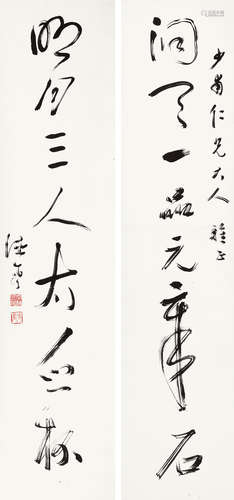 少甫仁兄大人雅正
洞天一品元章石
明月三人太白杯